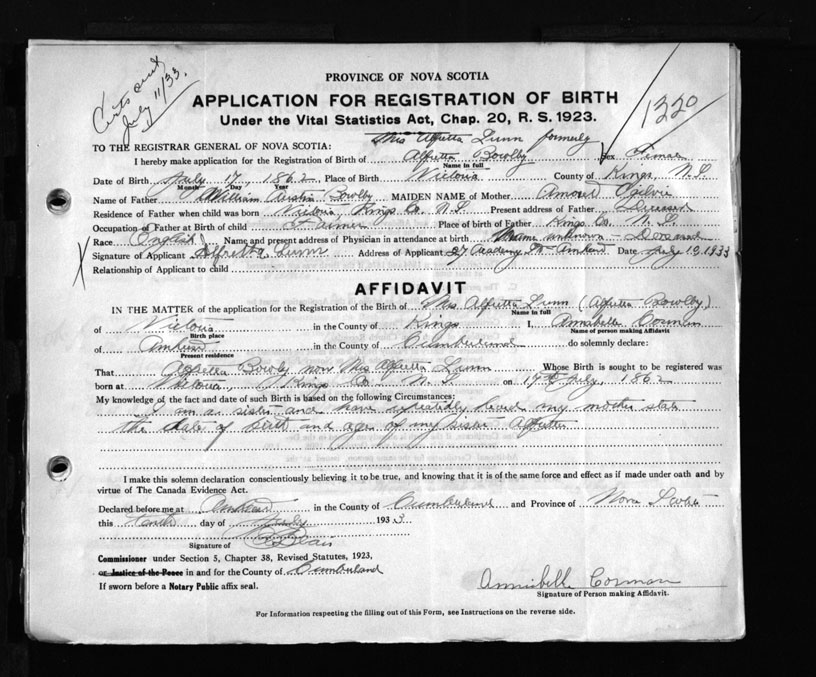 Certs sent
July 11/33.
1320
PROVINCE OF NOVA SCOTIA
APPLICATION FOR REGISTRATION OF BIRTH
Under the Vital Statistics Act, Chap. 20, R. S. 1923.
Mrs Alfretta Lunn formerly
TO THE REGISTRAR GENERAL OF NOVA SCOTIA:
I hereby make application for the Registration of Birth of Alfretta Bowlby Sex Female
Name in full
Date of Birth July 17, 1862 Place of Birth Victoria County of Kings, N.S.
Month Day Year
Name of Father William Bowlby MAIDEN NAME of Mother
Residence of Father when child was born Victoria, Kings Co. N.S. Present address of Father Deceased
Occupation of Father at Birth of child Farmer Place of birth of Father Kings Co. N.S.
Race English Name and present address of Physician in attendance at birth Name unknown - Deceased
Signature of Applicant Alfretta Lunn Address of Applicant Academy St Amherst Date July 10, 1933
Relationship of Applicant to child
AFFIDAVIT
IN THE MATTER of the application for the Registration of the Birth of Mrs Alfretta Lunn (Alfretta Bowlby)
Name in full
of Victoria in the County of Kings I, Annabelle
Birth place Name of person making Affidavit
of Amherst in the County of Cumberland do solemnly declare:
Present residence
That Alfretta Bowlby now Mrs Alfretta Lunn Whose Birth is sought to be registered was
born at Victoria, Kings Co. N.S. on July, 1862
My knowledge of the fact and date of such Birth is based on the following Circumstances:
I am a sister and have repeatedly heard my mother state
the date of birth and age of my sister Alfretta
I make this solemn declaration conscientiously believing it to be true, and knowing that it is of the same force and effect as if made under oath and by
virtue of The Canada Evidence Act.
Declared before me at Amherst in the County of Cumberland and Province of Nova Scotia
this tenth day of July 1933
Signature of Blair
Commissioner under Section 5, Chapter 38, Revised Statutes, 1923,
or Justice of the Peace in and for the County of Cumberland
If sworn before a Notary Public affix seal.
Annibelle Corman
Signature of Person making Affidavit.
For Information respecting the filling out of this Form, see Instructions on the reverse side.